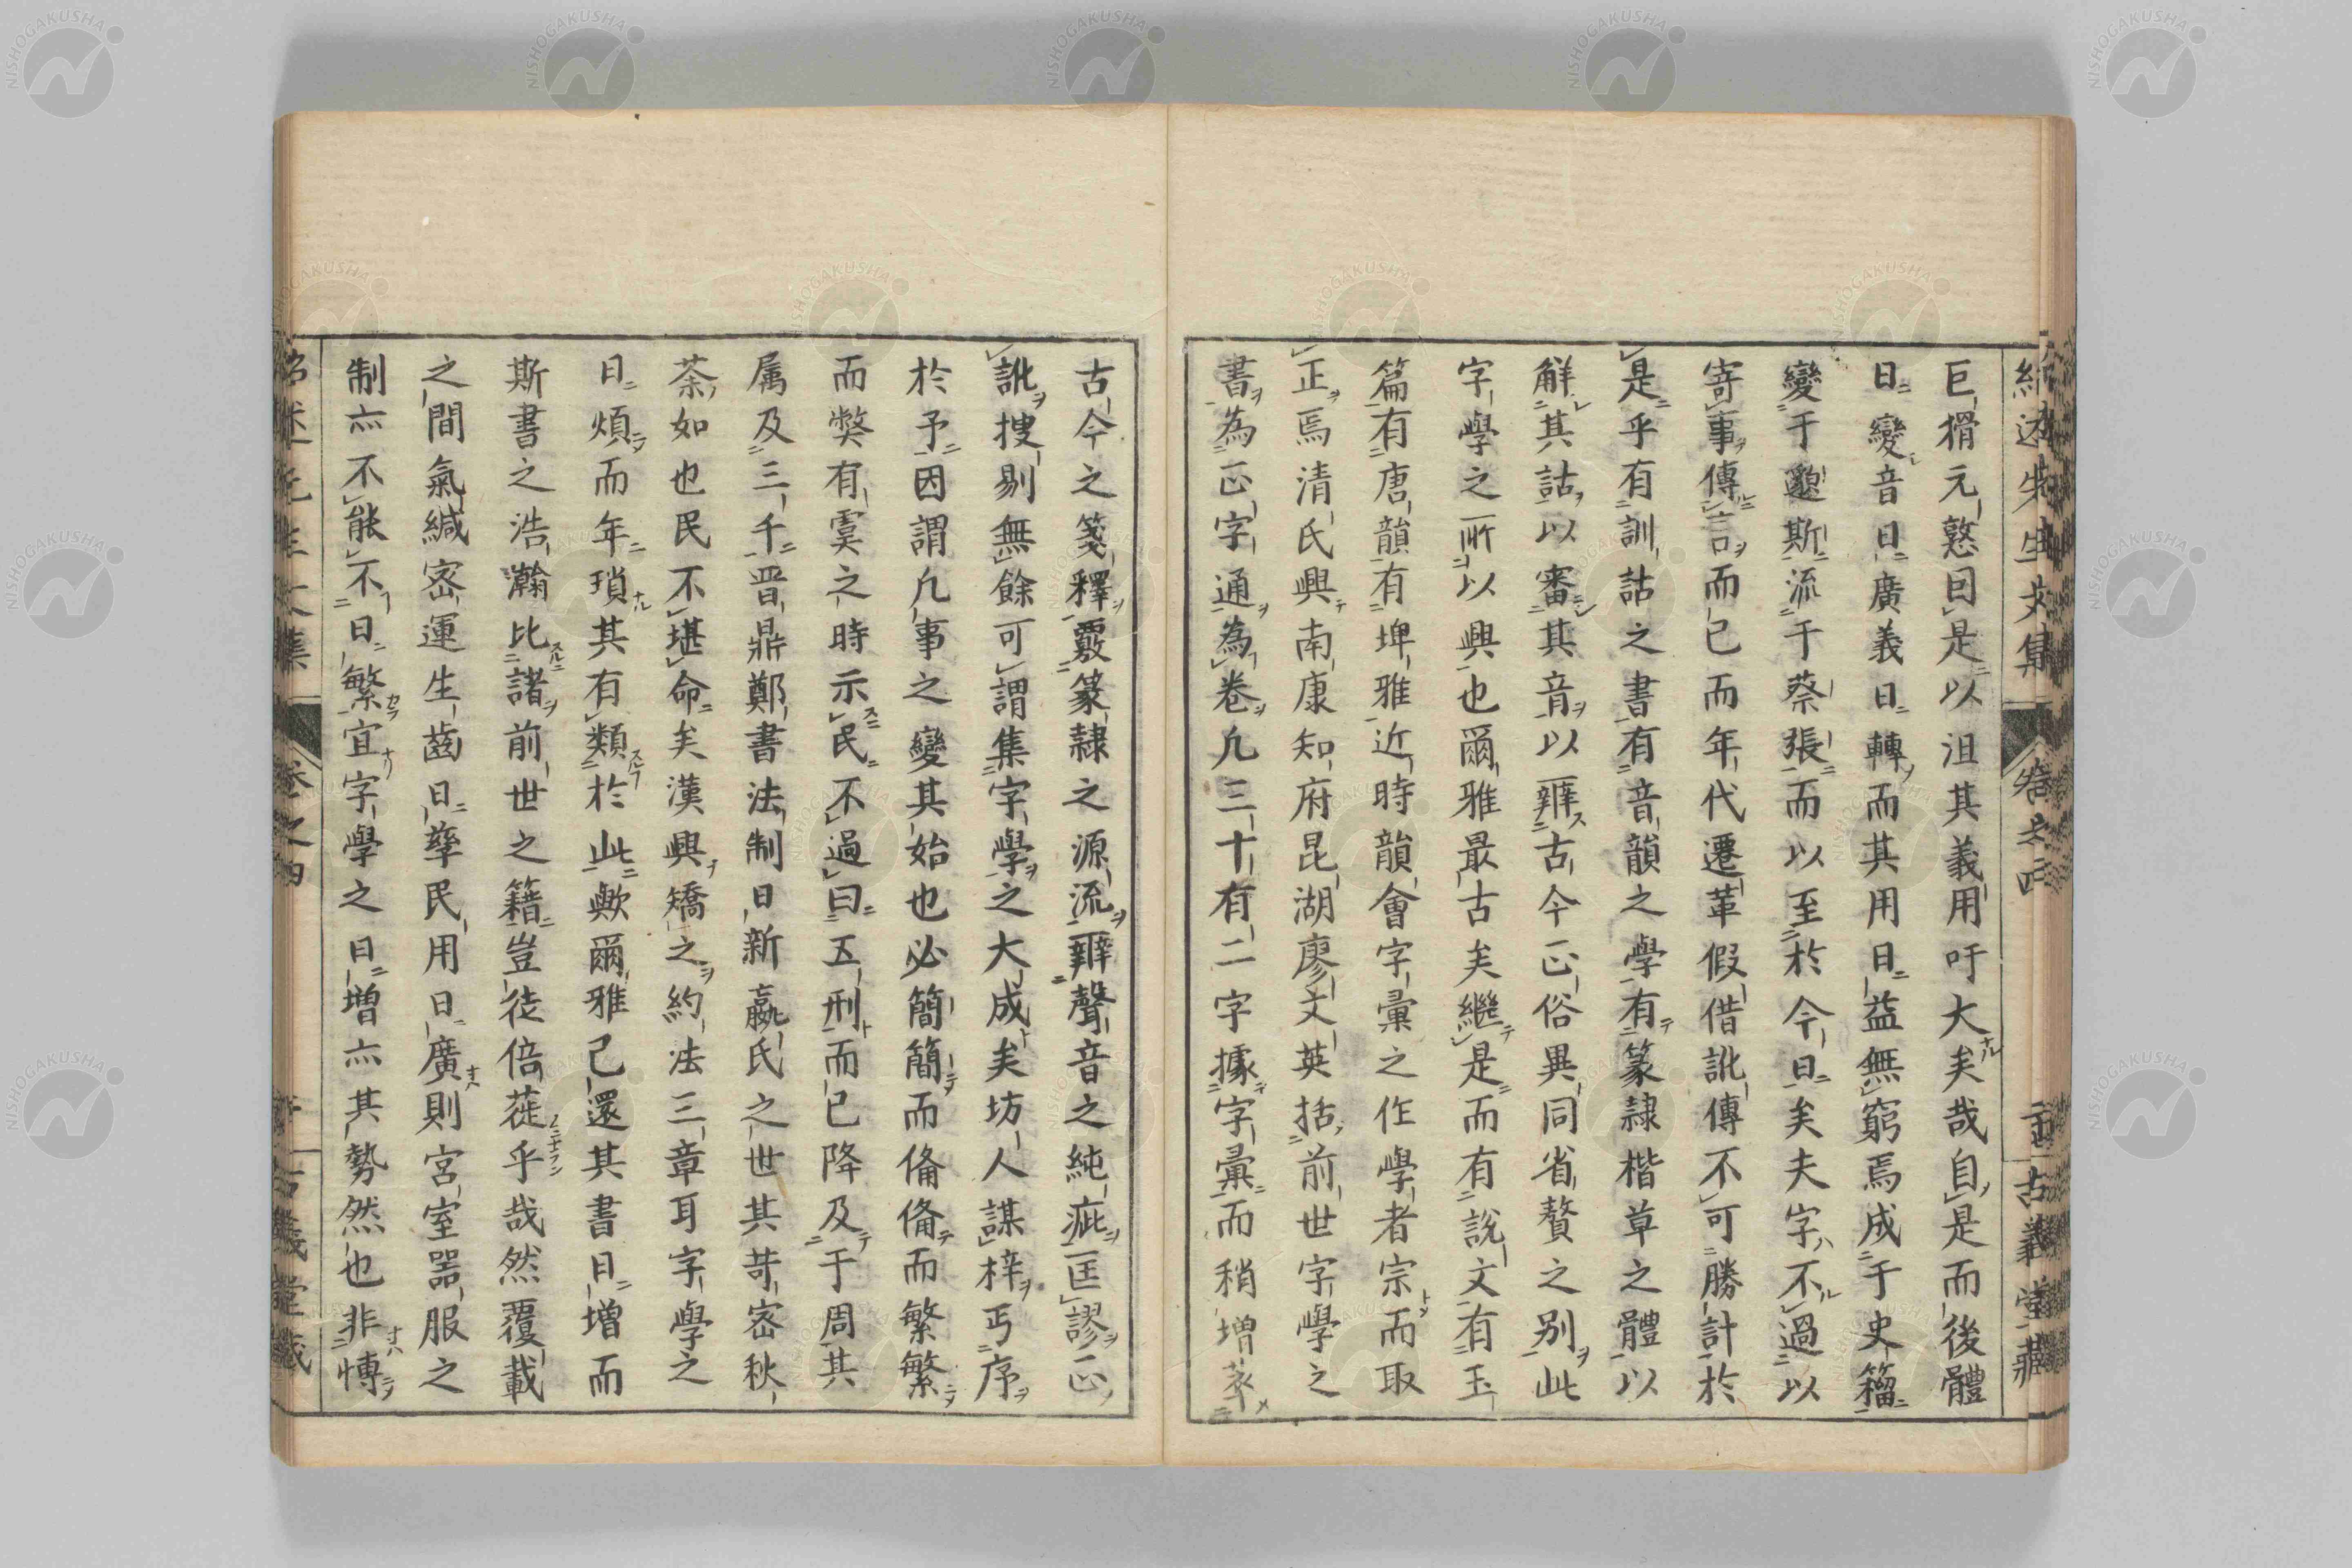 紹述先生文集 卷之四 古義堂藏
巨猾元憝囙是以沮其義用吁大矣哉自是而後體
日變音日廣義日轉而其用日益無窮焉成于史籀
變于邈斯流于蔡張而以至於今日矣夫字不過以
寄事傳言而已而年代遷革假借訛傳不可勝計於
是乎有訓詁之書有音韻之學有篆隸楷草之體以
觧其詁以審其音以辨古今正俗異同省贅之別此
字學之所以興也爾雅最古矣繼是而有說文有玉
篇有唐韻有埤雅近時韻會字彙之作學者宗而取
正焉清氏興南康知府昆湖廖文英括前世字學之
書為正字通為卷凡三十有二字據字彙而稍增
古今之箋釋覈篆隷之源流辨聲音之純疵匡謬正
訛搜剔無餘可謂集字學之大成矣坊人謀梓丐序
於予因謂凡事之變其始也必簡簡而俻俻而繁繁
而獘有虞之時示民不過曰五刑而已降及于周其
属及三千晋鼎鄭書法制日新嬴氏之世其苛密秋
荼如也民不堪命矣漢興矯之約法三章耳字學之
日煩而年瑣其有類於此歟爾雅已還其書日增而
斯書之浩瀚比諸前世之籍豈徒倍蓰乎哉然覆載
之間氣緘密運生齒日孳民用日廣則宮室噐服之
制亦不能不日繁宜字學之日增亦其勢然也非慱
紹述先生文集 卷之四 古義堂藏